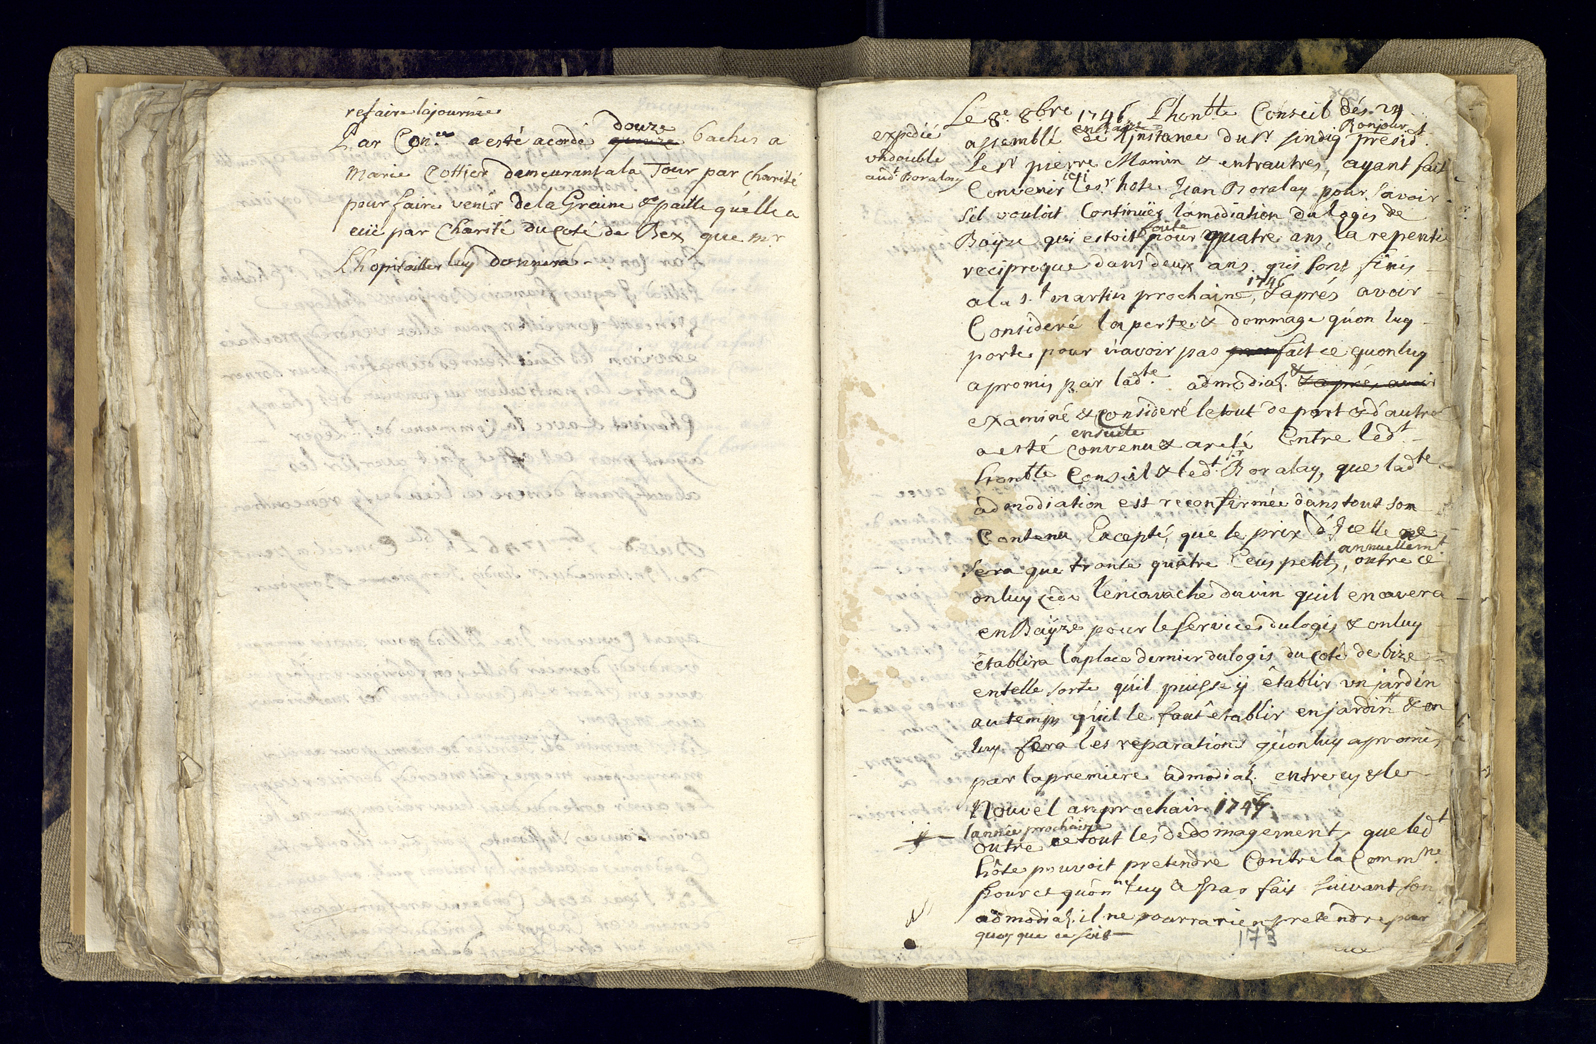 refaire la journée
Par Con.ce a esté acordé quinze douze baches a
Marie Cottier demeurant a la Tour par charité
pour faire venir de la Graine & paille qu'elle a
eüe par Charité du Coté de Bex que mr
L'hopitailler luy donnera -
Le 8e. 8bre 1746 L'honble Conseil des 24
expedié
un double
aud. Boralay
assemblé de l'instance du Sr. sindiq Bonjour présidt.
Le Sr pierre Mamin & entrautres, ayant fait
Convenir ici le Sr hote Jean Boralay pour savoir
s'il vouloit Continüer l'amodiation du logis de
Baÿze qui estoit faite pour quatre ans la repentie
reciproque dans deux ans qui sont finis
a la St. martin prochaine 1746, & aprés avoir
Consideré la perte & dommage qu'on luy
porte pour n'avoir pas fait ce qu'on luy
a promis par ladte. admodiaō. & & aprés avoir
examiné & Consideré le tout de part & d'autre
a esté ensuite convenu & areté Entre ledt
honble Conseil & ledt. Sr Boralay, que ladte
admodiation est reconfirmée dans tout son
Contenu, Excepté, que le prix d'Icelle ne
sera que trante quattre Ecus petits, annuellemt outre ce
on luy cède l'encavache du vin qu'il encavera
en Baÿze pour le services du logis & on luy
établira la place dernier du logis du coté de bize
en telle sorte qu'il puisse ÿ établir un jardin
au temps qu'il le faut établir en jardin & on
luy fera les reparations qu'on luy a promis
par la premiere admodiaō. entre cy & le
Nouvel an prochain 1747.
l'année prochaine
outre ce tout les dédomagements que ledt
hôte pouvoit pretendre Contre la Commne
pour ce qu'on ne luy a pas fait suivant son
admodiaō. il ne pourra rien pretendre pour
quoy que ce soit -
178